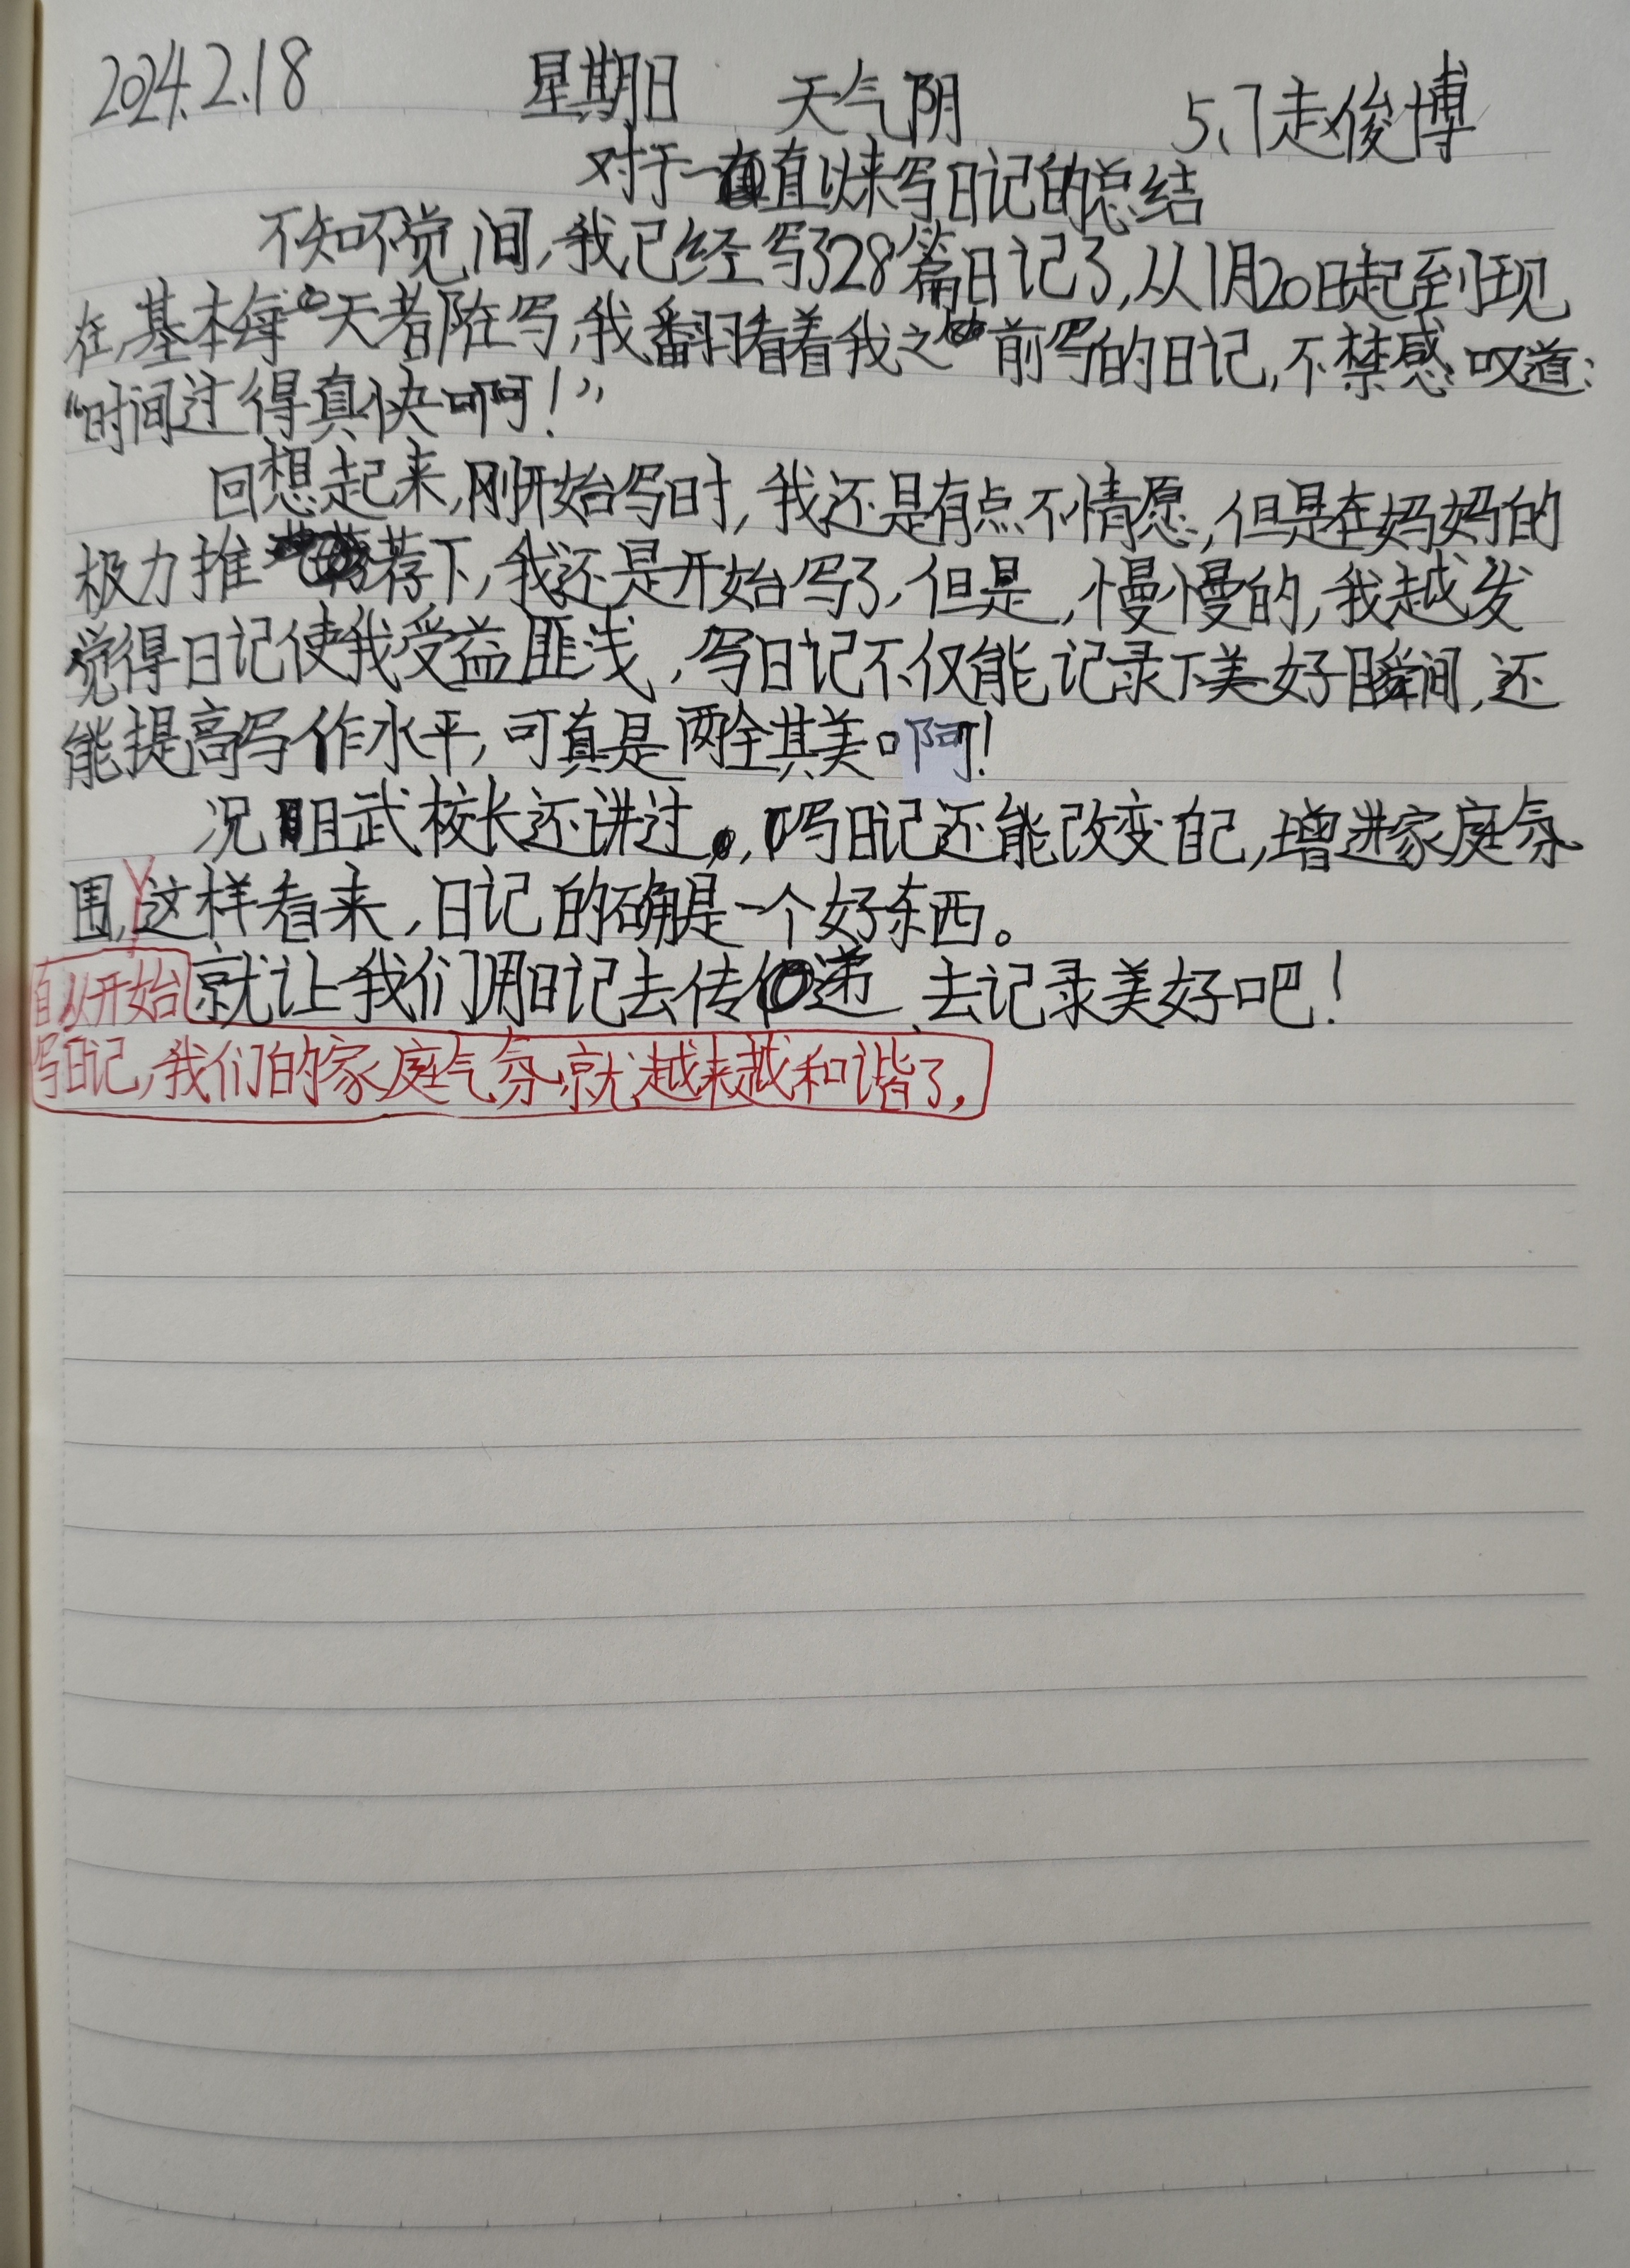 2024.2.18 星期日 天气阴 5.7赵俊博
对于一直以来写日记的总结
不知不觉间,我已经写了28篇日记了,从1月20日起到现
在,基本每天都在写,我翻看着我之前写的日记,不禁感叹道:
“时间过得真快啊!”
回想起来,刚开始写时,我还是有点不情愿,但是在妈妈的
极力推荐下,我还是开始写了,但是,慢慢的,我越发
觉得日记使我受益匪浅,写日记不仅能记录下美好瞬间,还
能提高写作水平,可真是两全其美啊!
况且武校长还讲过,写日记还能改变自己,增进家庭氛
围,这样看来,日记的确是一个好东西。
就让我们用日记去传递、去记录美好吧!
自从开始
写日记,我们的家庭气氛就越来越和谐了,